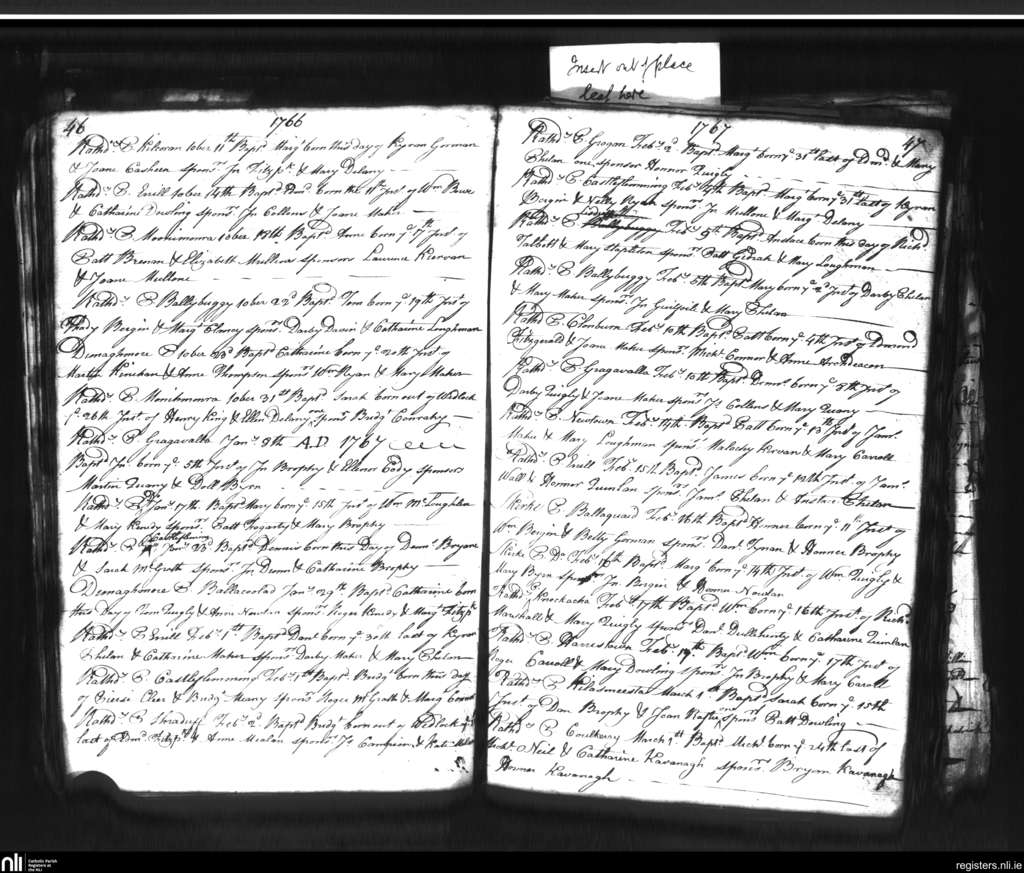 Insert out of place
leaf here
46 1766
Rathd. P. Kilrwan 10ber 11th Bapt. Marg. born this day of Kyran Gorman
& Joane Cashern spons. Jn. Fitzpk. & Mary Delany
Rathd. P. Errill 10ber 14th Bapt. born the 11th Inst. of Wm.
& Catharine Dowling spons. Jn. Collens & Joane Maher
Rathd. P. Monhimonra 10ber 18th Bapt. Anne born ye. 7th Inst. of
Batt Brenan & Elizabeth Mullona sponsors Laurince Kiervan
& Joane Mullone
Rathd. P. Ballybuggy 10ber 22d Bapt. Tom born ye. 19th Inst. of
Thady Bergin & Marg. Clancy spons. Darby Davin & Catharine Loughman
Donaghmore P. 10ber 23d Bapt. Catharine born ye. 20th Inst. of
Martin Kinchan & Anne Thompson spons. Wm. Ryan & Mary Maher
Rathd. P. Monihmonra 10ber 31st Bapt. Sarah born out of Wedlock
ye. 26th Inst. of Henry King & Ellen Delany spons. Bridg. Conrahy
Rathd. P. Gragavalla Jan. 8th A.D 1767
Bapt. Jn. born ye. 5th Inst. of Jn. Brophy & Ellenor Cody sponsors
Martin Quany & Doll Byrn
Rathd. P. Do. Jan. 17th Bapt. Mary born ye. 15th Inst. of Wm. McLoughlen
& Mary Kendy spons. Batt Fogarty & Mary Brophy
Rathd. P. Castlefluming Jan. 23d Bapt. Dennis born this Day of Denis Bryane
& Sarah McGrath spons. Jn. Dunn & Catharine Brophy
Donaghmore P. Ballacoolad Jan. 29th Bapt. Catharine born
this Day of Tom Quigly & Anne Nowlan spons. Roger Kendy & Marg. Fitzpk.
Rathd. P. Errill Feb. 1st Bapt. Danl. born ye. 30th last of Kyran
Phelan & Catharine Maher spons. Darby Maher & Mary Phelan
Rathd. P. Castleflemming Feb. 1st Bapt. Bridg. born this day
of Pierse Cleer & Bridg. Meany spons. Roger McGrath & Marg.
Rathd. P. Shraduff Feb. 2 Bapt. Bridg. born out of Wedlock
last of Edmd. Fitzpk. & Anne Mealan spons. Jn. Campion & Kate
1767 47
Rathd. P. Grogan Feb. 2d Bapt. Marg. born ye. 31st last of Edmd. & Mary
Phelan one sponsor Honnor Quigly
Rathd. P. Castleflemming Feb. 4th Bapt. Marg. born ye. 31st last of Kyran
Bergin & Nelly Ryan spons. Jn. Mullone & Marg. Delany
Rathd. P. Feb. 5th Bapt. Anstace born this day of Richd.
Talbott & Mary Stapleton spons. Batt & Mary Loughman
Rathd. P. Ballybuggy Feb. 5th Bapt. Mary born ye. 2d Inst. of Darby Phelan
& Mary Maher spons. Jn. Guilfoil & Mary Phelan
Rathd. P. Clonburn Feb. 10th Bapt. Batt born ye. 4th Inst. of Edmond
Fitzgerald & Joane Maher spons. Mich. Connor & Anne ArchDeacon
Rathd. P. Gragavalla Feb. 15th Bapt. born ye. 9th Inst. of
Darby Quigly & Joane Maher spons. Jn. Collens & Mary Quany
Rathd. P. Newtown Feb. 14th Bapt. Batt born ye. 13th Inst. of Jams.
& Mary Loughman spons. Malachy Kervan & Mary Carroll
Rathd. P. Errill Feb. 15th Bapt. James born ye. 12th Inst. of Jams.
Wall & Honnor Quinlan spons. Jams. Phelan & Anstace Phelan
P. Ballaguard Feb. 16th Bapt. Honner born ye. 11th Inst. of
Wm. Bergin & Betty Gorman spons. Danl. Tynan & Honner Brophy
P. Do. Feb. 16th Bapt. Marg. born ye. 14th Inst. of Wm. Quigly &
Mary Byrn spons. Jn. Bergin & Honner Nowlan
Rathd. P. Knockacha Feb. 17th Bapt. Wm. born ye. 16th Inst. of Rich.
Marshall & Mary Quigly spons. Danl. Dullehunty & Catharine Quinlan
Rathd. P. Harristown Feb. 19th Bapt. Wm. born ye. 17th Inst. of
Roger Carroll & Mary Dowling spons. Jn. Brophy & Mary Caroll
Rathd. P. Kilasmeesta March 1st Bapt. Sarah born ye. 15th
Inst. of Dan Brophy & Joan spons. Batt Dowling
Rathd. P. Coulkerry March 1st Bapt. Mich. born ye. 24th last of
Mich. Neil & Catharine Kavanagh spons. Bryan Kavanagh
Honner Kavanagh
nli
Catholic Parish
Registers at
the NLI
registers.nli.ie